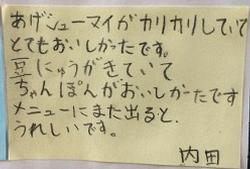 あげシューマイがカリカリしていて
とてもおいしかったです。
豆にゅうがきいていて
ちゃんぽんがおいしかったです
メニューにまた出ると
うれしいです。
内田